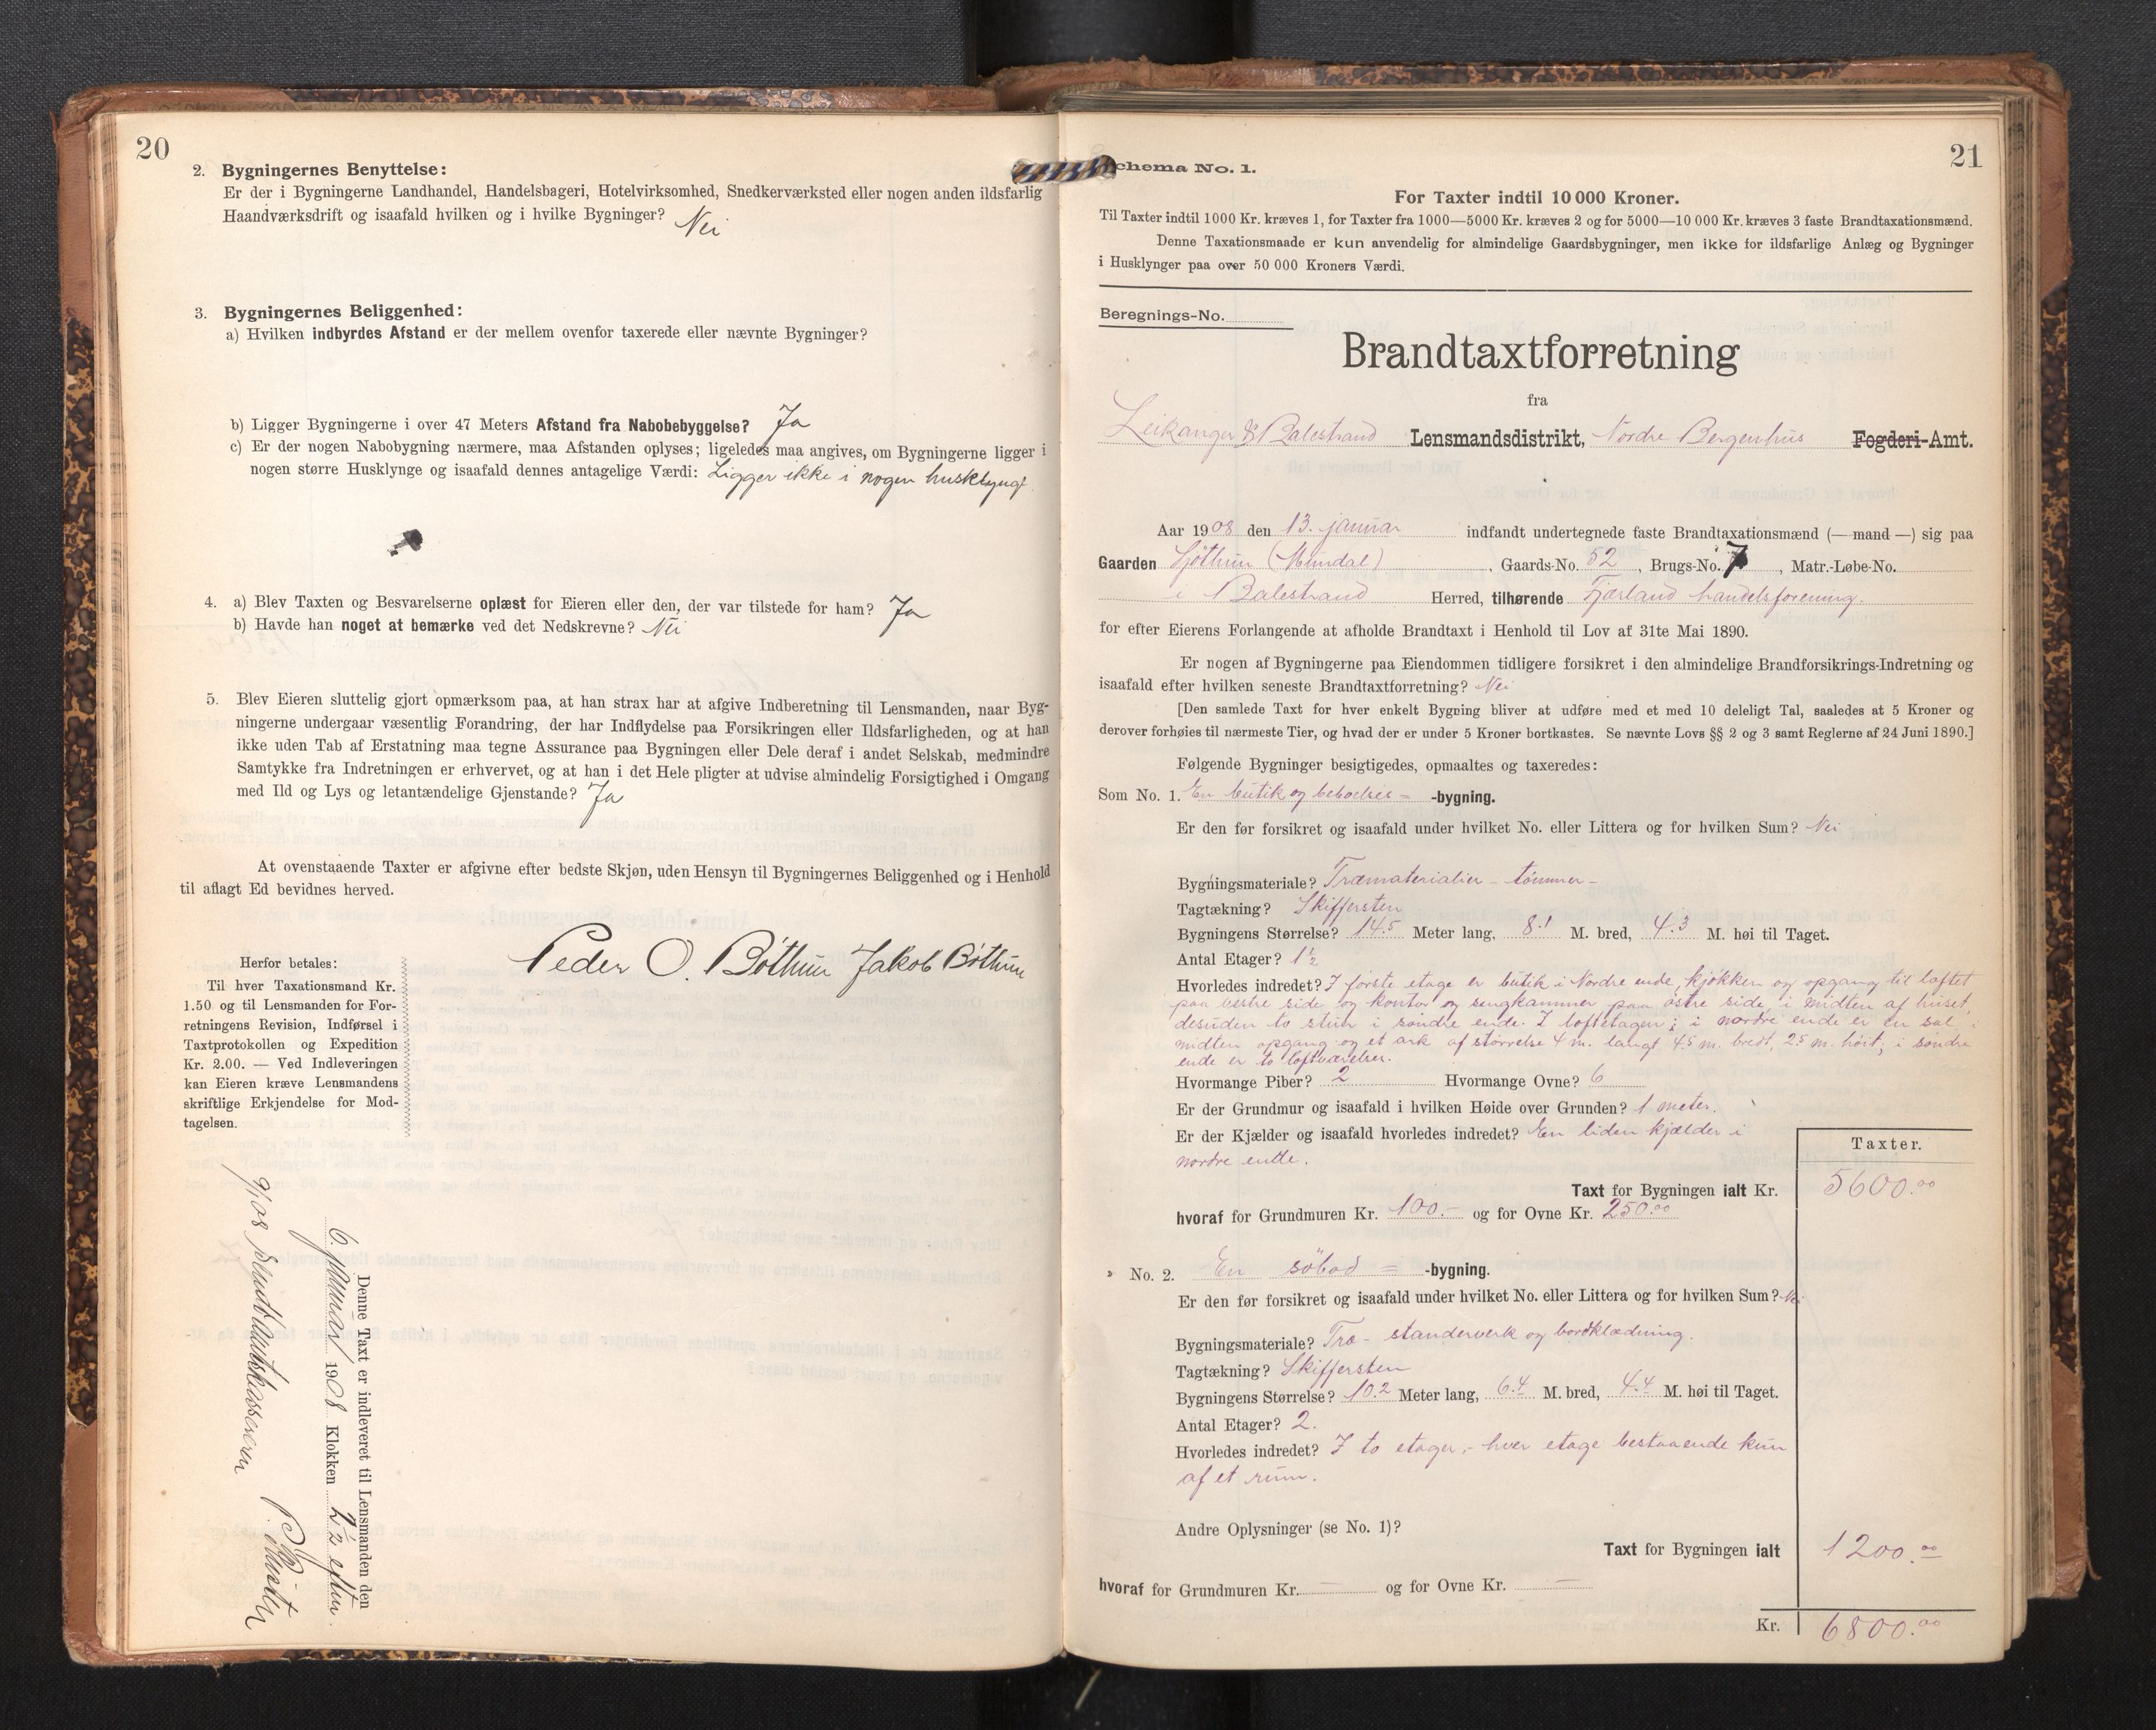 20
2. Bygningernes Benyttelse:
Er der i Bygningerne Landhandel, Handelsbageri, Hotelvirksomhed, Snedkerværksted eller nogen anden ildsfarlig
Haandværksdrift og isaafald hvilken og i hvilke Bygninger? Nei
3. Bygningernes Beliggenhed:
a) Hvilken indbyrdes Afstand er der mellem ovenfor taxerede eller nævnte Bygninger?
b) Ligger Bygningerne i over 47 Meters Afstand fra Nabobebyggelse? Ja
c) Er der nogen Nabobygning nærmere, maa Afstanden oplyses; ligeledes maa angives, om Bygningerne ligger i
nogen større Husklynge og isaafald dennes antagelige Værdi: Ligger ikke i nogen husklynge
4. a) Blev Taxten og Besvarelserne oplæst for Eieren eller den, der var tilstede for ham? Ja
b) Havde han noget at bemærke ved det Nedskrevne? Nei
5. Blev Eieren sluttelig gjort opmærksom paa, at han strax har at afgive Indberetning til Lensmanden, naar Byg-
ningerne undergaar væsentlig Forandring, der har Indflydelse paa Forsikringen eller Ildsfarligheden, og at han
ikke uden Tab af Erstatning maa tegne Assurance paa Bygningen eller Dele deraf i andet Selskab, medmindre
Samtykke fra Indretningen er erhvervet, og at han i det Hele pligter at udvise almindelig Forsigtighed i Omgang
med Ild og Lys og letantændelige Gjenstande? Ja
At ovenstaaende Taxter er afgivne efter bedste Skjøn, uden Hensyn til Bygningernes Beliggenhed og i Henhold
til aflagt Ed bevidnes herved.
Peder O. Bøthun Jakob Bøthun
Herfor betales:
Til hver Taxationsmand Kr.
1.50 og til Lensmanden for For-
retningens Revision, Indførsel i
Taxtprotokollen og Expedition
Kr. 2.00. — Ved Indleveringen
kan Eieren kræve Lensmandens
skriftlige Erkjendelse for Mod-
tagelsen.
Denne Taxt er indleveret til Lensmanden den
6. januar 1908 Klokken 2 1/2 efterm.
Schema No. 1.
21
For Taxter indtil 10 000 Kroner.
Til Taxter indtil 1000 Kr. kræves 1, for Taxter fra 1000—5000 Kr. kræves 2 og for 5000—10 000 Kr. kræves 3 faste Brandtaxationsmænd.
Denne Taxationsmaade er kun anvendelig for almindelige Gaardsbygninger, men ikke for ildsfarlige Anlæg og Bygninger
i Husklynger paa over 50 000 Kroners Værdi.
Beregnings-No.
Brandtaxtforretning
fra
Leikanger & Balestrand Lensmandsdistrikt, Nordre Bergenhus Fogderi-Amt.
Aar 1908 den 13. januar indfandt undertegnede faste Brandtaxationsmænd (— mand —) sig paa
Gaarden Sjøthun (Mundal), Gaards-No. 52, Brugs-No. 7, Matr.-Løbe-No.
i Balestrand Herred, tilhørende Fjærland handelsforening.
for efter Eierens Forlangende at afholde Brandtaxt i Henhold til Lov af 31te Mai 1890.
Er nogen af Bygningerne paa Eiendommen tidligere forsikret i den almindelige Brandforsikrings-Indretning og
isaafald efter hvilken seneste Brandtaxtforretning? Nei
[Den samlede Taxt for hver enkelt Bygning bliver at udføre med et med 10 deleligt Tal, saaledes at 5 Kroner og
derover forhøies til nærmeste Tier, og hvad der er under 5 Kroner bortkastes. Se nævnte Lovs §§ 2 og 3 samt Reglerne af 24 Juni 1890.]
Følgende Bygninger besigtigedes, opmaaltes og taxeredes:
Som No. 1. En butik og beboelses= -bygning.
Er den før forsikret og isaafald under hvilket No. eller Littera og for hvilken Sum? Nei
Bygningsmateriale? Træmaterialier - tømmer -
Tagtækning? Skiffersten
Bygningens Størrelse? 14.5 Meter lang, 8.1 M. bred, 4.3 M. høi til Taget.
Antal Etager? 1 1/2
Hvorledes indredet? I første etage er butik i Nordre ende, kjøkken og opgang til loftet
paa vestre side og kontor og sengkammer paa østre side, i midten af huset,
desuden to stuer i søndre ende. I loftetagen; i nordre ende er en sal i
midten opgang og et ark af størrelse 4 m. langt 4.5 m. bredt, 2.5 m. høit; i søndre
ende er to loftværelser.
Hvormange Piber? 2 Hvormange Ovne? 6
Er der Grundmur og isaafald i hvilken Høide over Grunden? 1 meter.
Er der Kjælder og isaafald hvorledes indredet? En liden kjælder i
nordre ende.
Taxter.
Taxt for Bygningen ialt Kr. 5600.00
hvoraf for Grundmuren Kr. 100.- og for Ovne Kr. 250.00
» No. 2. En søbod = -bygning.
Er den før forsikret og isaafald under hvilket No. eller Littera og for hvilken Sum? Nei
Bygningsmateriale? Træ - standerverk og bordklædning.
Tagtækning? Skiffersten
Bygningens Størrelse? 10.2 Meter lang, 6.4 M. bred, 4.4 M. høi til Taget.
Antal Etager? 2.
Hvorledes indredet? I to etager, - hver etage bestaaende kun
af et rum.
Andre Oplysninger (se No. 1)?
Taxt for Bygningen ialt 1200.00
hvoraf for Grundmuren Kr. — og for Ovne Kr. —
Kr. 6800.00